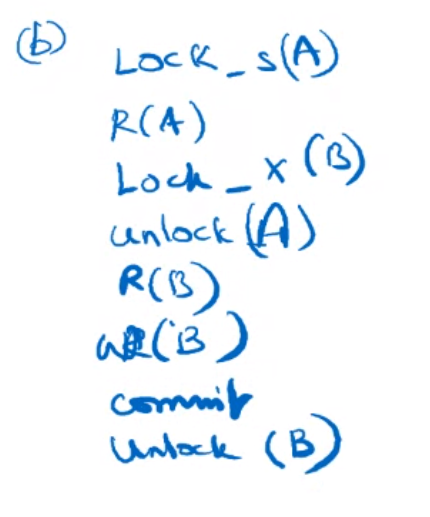 (b)
Lock_s(A)
R(A)
Lock_x(B)
unlock(A)
R(B)
W(B)
commit
Unlock (B)